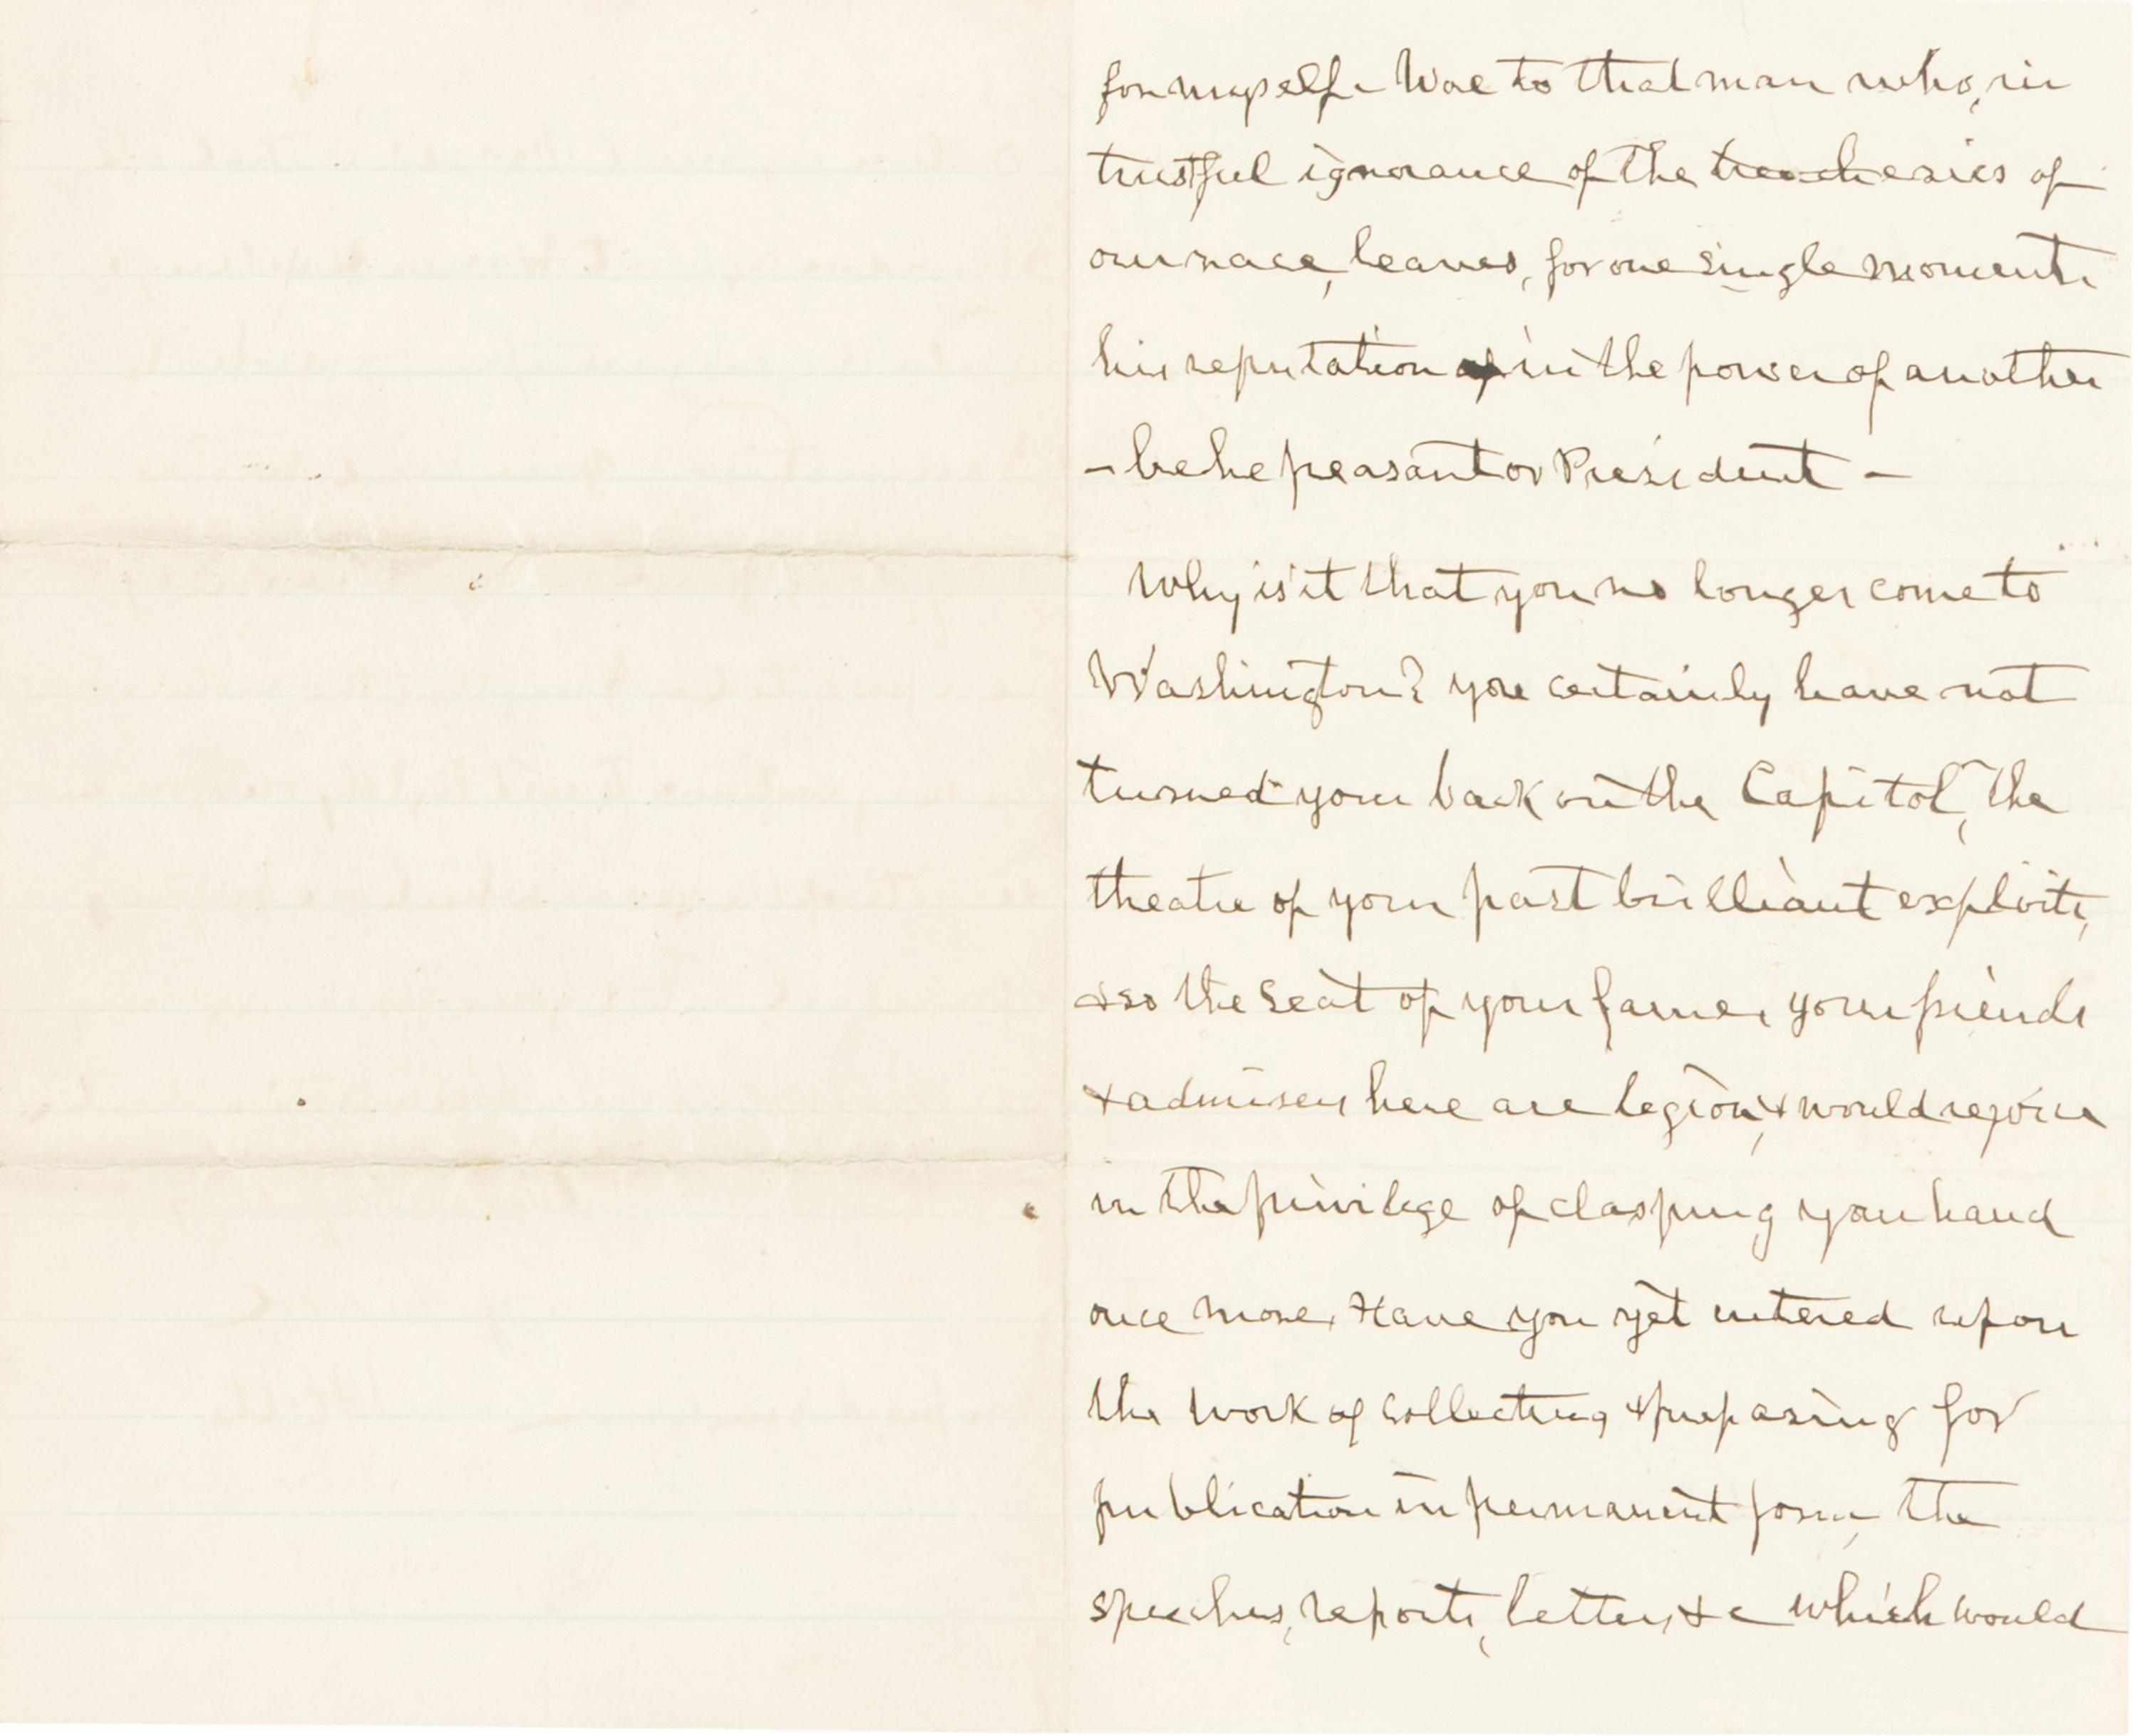 for myself. Woe to that man who, in
trustful ignorance of the treacheries of
our race, leaves, for one single moment,
his reputation in the power of another
- be he peasant or President -
Why is it that you no longer come to
Washington? you certainly have not
turned your back on the Capitol, the
theatre of your past brilliant exploits,
& so the seat of your fame. your friends
& admirers here are legion, & would rejoice
in the privilege of clasping your hand
once more. Have you yet entered upon
the work of collecting & preparing for
publication in permanent form, the
speeches, reports, letters, &c which would